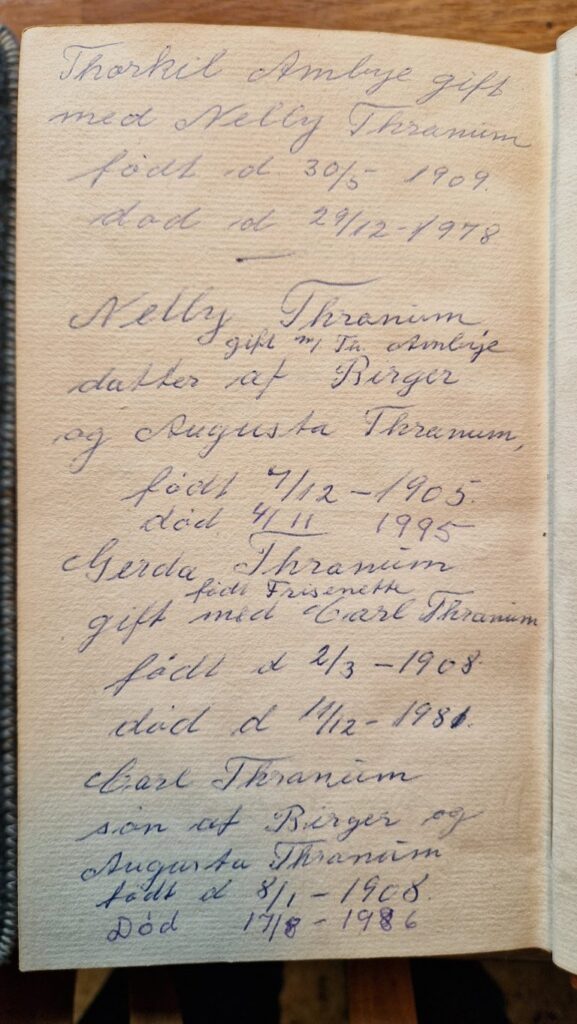 Thorkil Ambye gift
med Nelly Thranum
født d 30/5 1909.
død d 29/12-1978
Nelly Thranum
gift m/ Th. Ambye
datter af Birger
og Augusta Thranum,
født 7/12-1905.
død 4/11 1995
Gerda Thranum
født Frisenette
gift med Carl Thranum
født d 2/3-1908.
død d 11/12-1981.
Carl Thranum
søn af Birger og
Augusta Thranum
født d 8/1-1908.
Død 17/8-1986